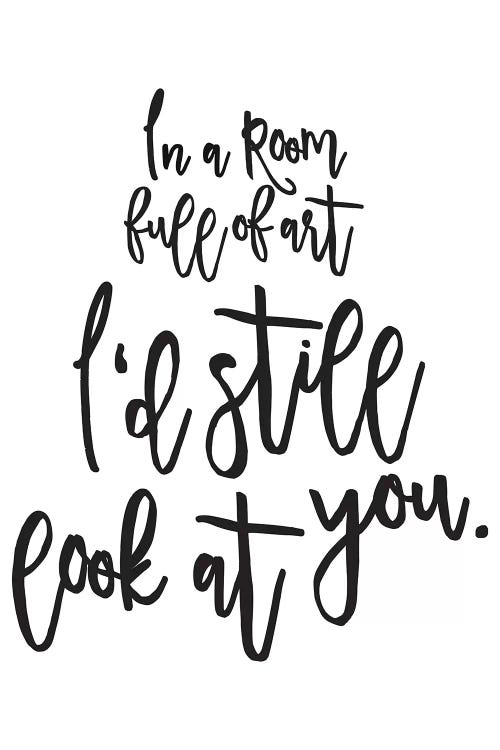 In a Room
full of art
I'd still
look at you.